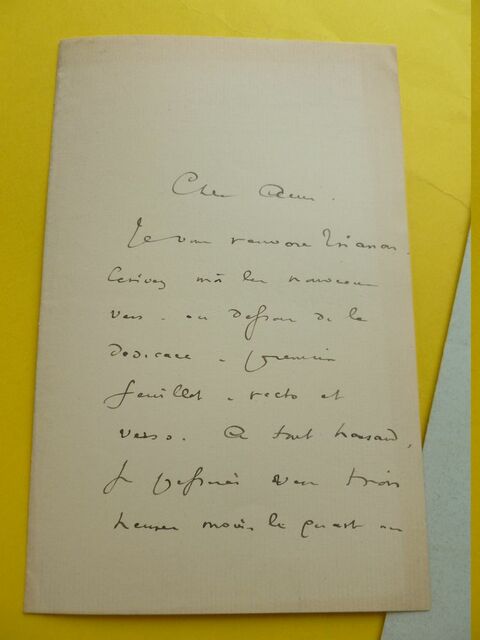 Cher Ami.
Je vous renvoie Trianon.
Ecrivez moi les nouveaux
vers. au dessous de la
dédicace - premier
feuillet - recto et
verso. A tout hasard,
je passerai vers trois
heures moins le quart au